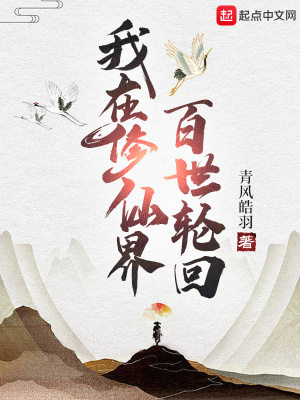 起 起点中文网
我在修仙界
百世轮回
青风皓羽 著